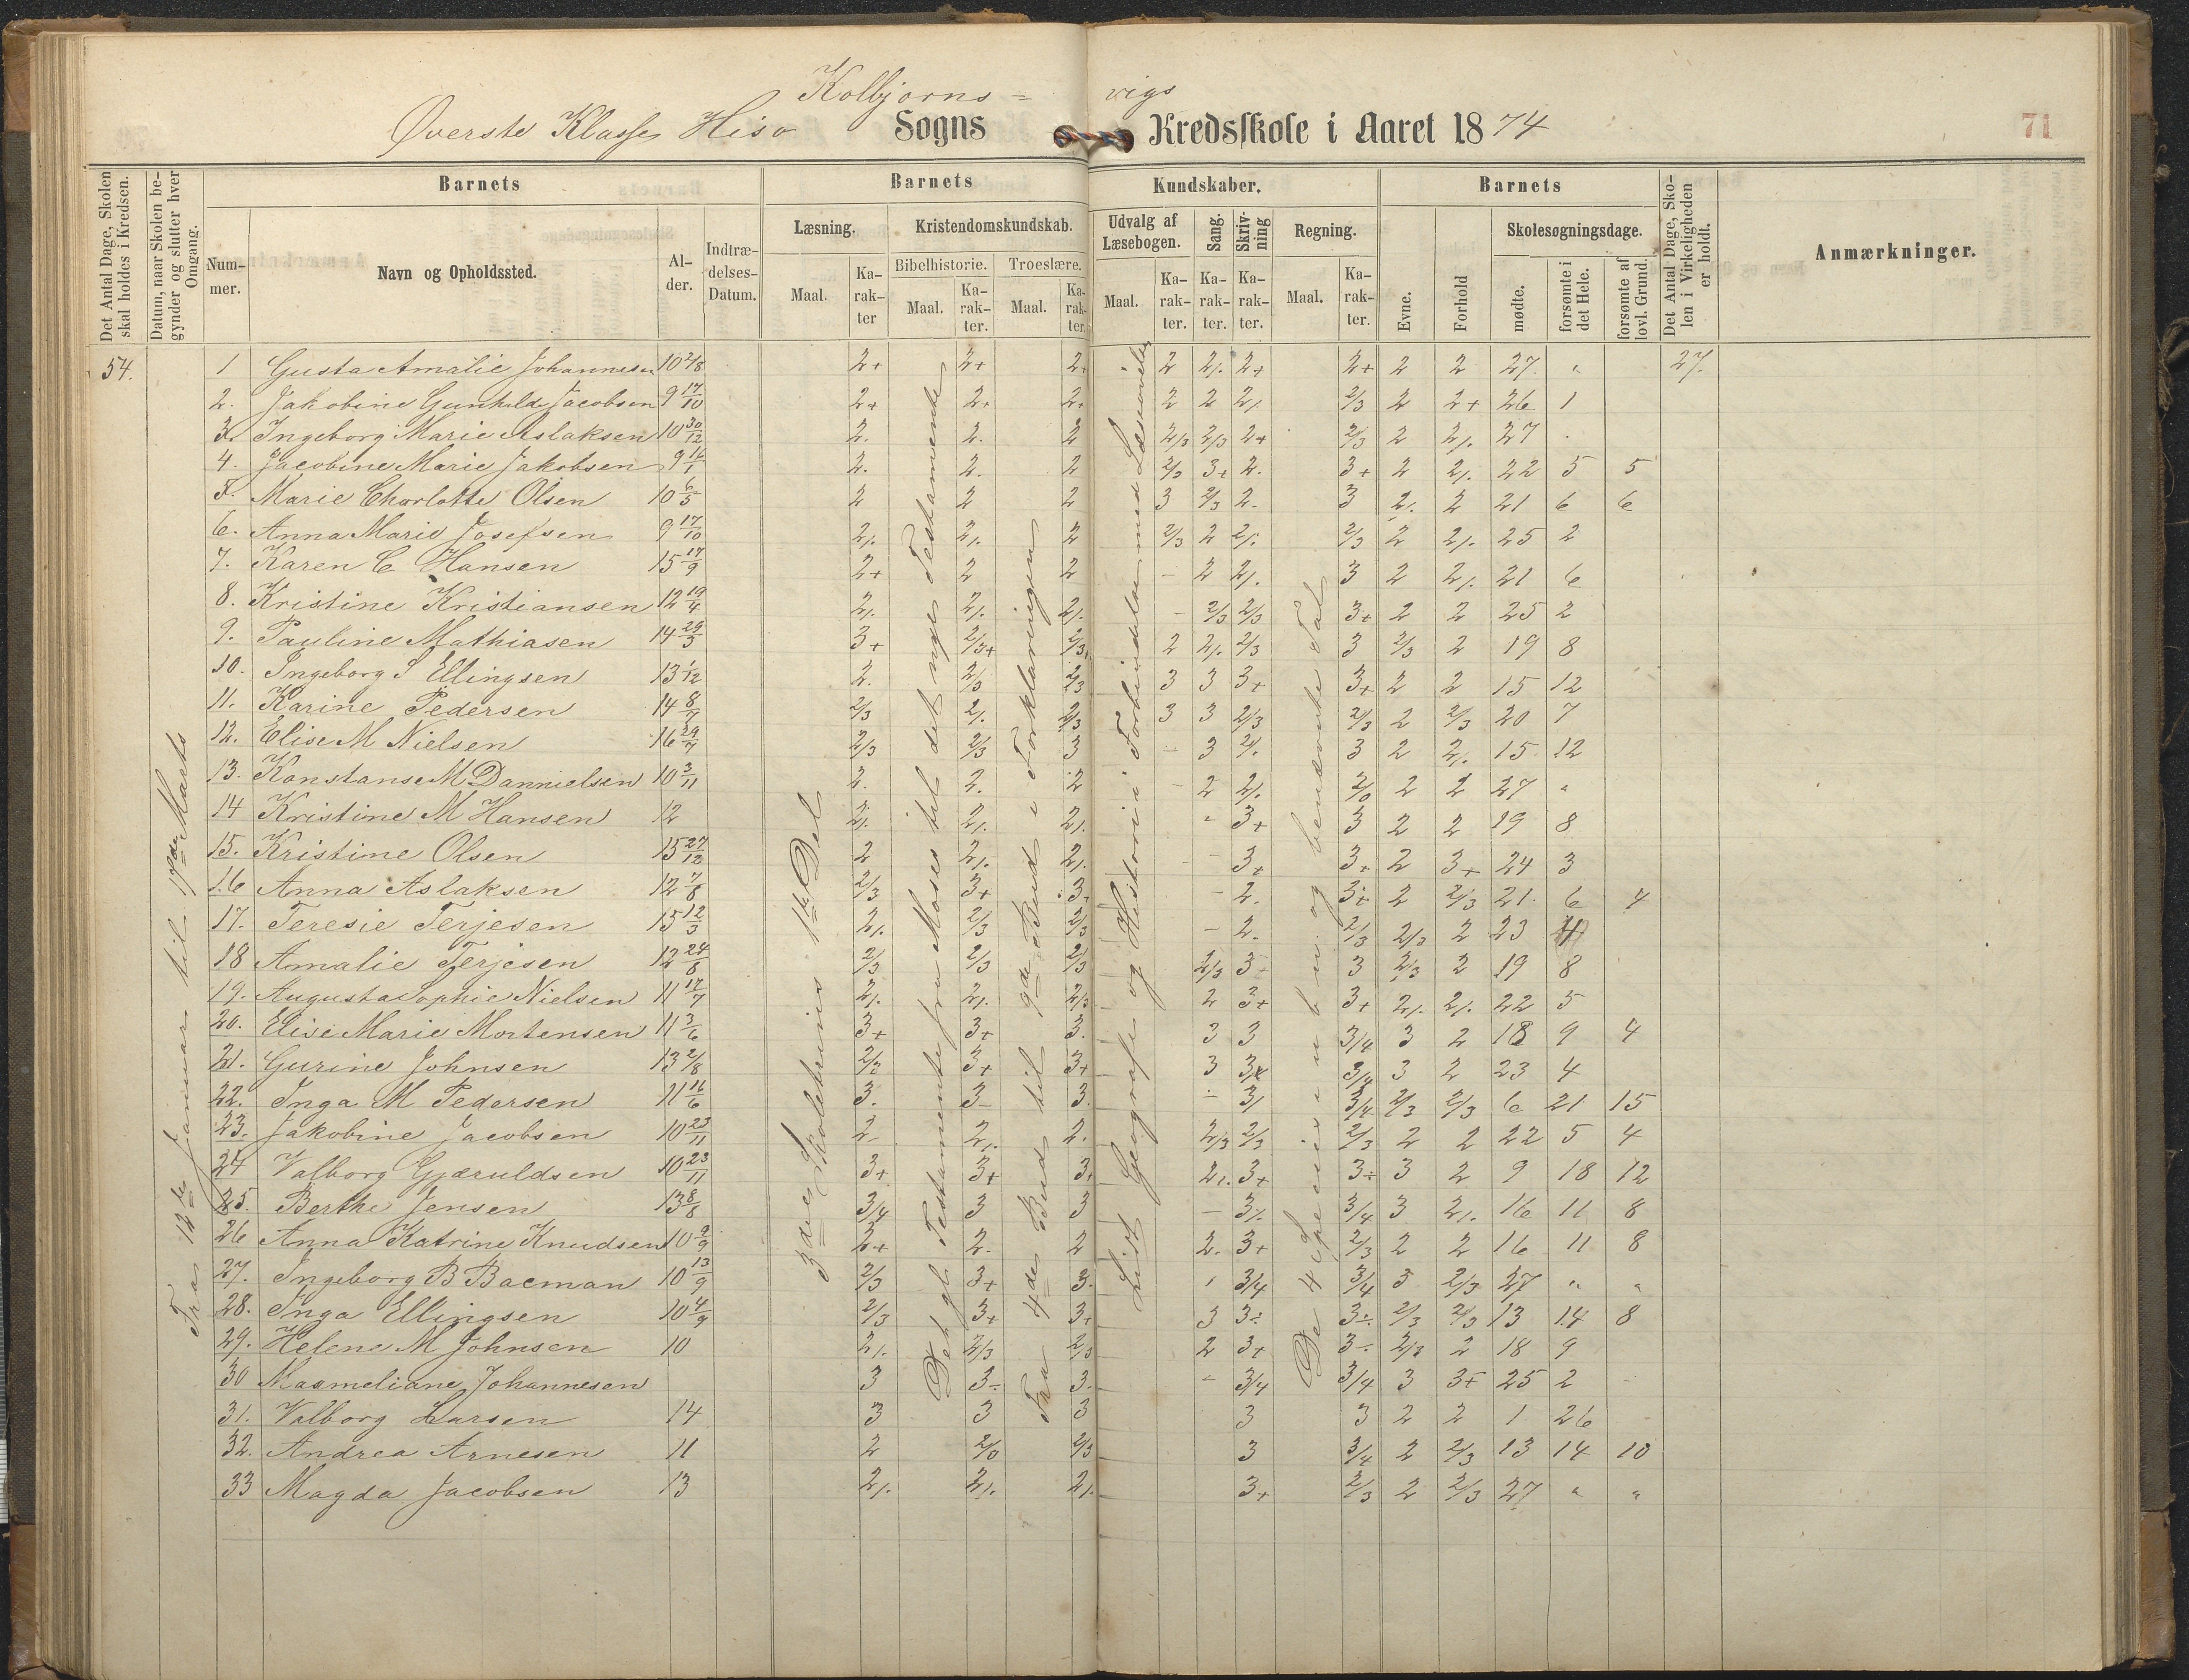 Kolbjorns= vigs
Øverste Klasse Hisø Sogns Kredsskole i Aaret 1874
71
Det Antal Dage, Skolen skal holdes i Kredsen.
Datum, naar Skolen begynder og slutter hver Omgang.
Barnets
Barnets
Kundskaber.
Barnets
Det Antal Dage, Skolen i Virkeligheden er holdt.
Anmærkninger.
Nummer.
Navn og Opholdssted.
Alder.
Indtrædelses-Datum.
Læsning.
Kristendomskundskab.
Udvalg af Læsebogen.
Sang.
Skrivning
Regning.
Evne.
Forhold
Skolesøgningsdage.
Maal.
Karakter
Bibelhistorie.
Troeslære.
Maal.
Karakter.
Maal.
Karakter.
Maal.
Karakter.
Karakter.
Karakter.
Maal.
Karakter.
mødte.
forsømte i det Hele.
forsømte af lovl. Grund.
54.
Fra 12de Januar til 17de Marts
3die Skoletrins 1ste Del
Det gl Testamente fra Moses til det nye Testamente
Fra 4de Bud til 9de Bud i Forklaringen
Lidt Geografi og Historie i Forbindelse med Læsøvelse
De 4 Specieis i ubn. og benævnte Tal
1 Gusta Amalie Johannesen 10 2/8 2+ 2+ 2+ 2 2/. 2+ 2+ 2 2 27. " 27.
2. Jakobine Gunhilde Jacobsen 9 17/10 2+ 2+ 2+ 2 2 2/. 2/3 2 2+ 26 1
3. Ingeborg Marie Aslaksen 10 30/12 2. 2. 2 2/3 2/3 2+ 2/3 2 2/. 27 .
4. Jacobine Marie Jakobsen 9 16/1 2. 2. 2 2/3 3+ 2. 3+ 2 2/. 22 5 5
5. Marie Charlotte Olsen 10 6/5 2 2 2 3 2/3 2. 3 2/. 2 21 6 6
6. Anna Marie Josefsen 9 17/10 2/. 2/. 2 2/3 2 2/. 2/3 2 2/. 25 2
7. Karen C Hansen 15 17/9 2+ 2 2 - 2 2/. 3 2 2/. 21 6
8. Kristine Kristiansen 12 19/4 2/. 2/. 2/. - 2/3 2/3 3+ 2 2 25 2
9. Pauline Mathiasen 14 29/3 3+ 2/3+ 2/3+ 2 2/. 2/3 3 2/3 2 19 8
10. Ingeborg S Ellingsen 13 1/12 2. 2/3 2/3 3 3 3+ 3+ 2 2 15 12
11. Karine Pedersen 14 8/7 2/3 2/. 2/3 3 3 2/3 2/3 2 2/3 20 7
12. Elise M Nielsen 16 29/7 2/3 2/3 3 - 3 2/. 3 2 2/. 15 12
13. Konstanse M Dannielsen 10 3/11 2. 2. 2 - 2 2/. 2/0 2 2 27 "
14 Kristine M Hansen 12 2/. 2/. 2/. - 3+ 3 2 2 19 8
15. Kristine Olsen 15 27/12 2 2/. 2/. - 3+ 3+ 2 3+ 24 3
16 Anna Aslaksen 12 7/8 2/3 3+ 3. - 2. 3+ 2 2/3 21. 6 4
17. Teresie Terjesen 15 12/3 2/. 2/3 2/3 - 2. 2/3 2/3 2 23 4
18 Amalie Terjesen 12 24/8 2/3 2/3 2/3 2/3 3+ 3 2/3 2 19 8
19. Augusta Sophie Nielsen 11 17/7 2/. 2/. 2/3 2 3+ 3+ 2/. 2/. 22 5
20. Elise Marie Mortensen 11 3/6 3+ 3+ 3. 3 3 3/4 3 2 18 9 4
21. Gurine Johnsen 13 2/8 2/3 3+ 3+ 3 3+ 3/4 3 2 23 4
22. Inga M Pedersen 11 16/6 3. 3- 3. - 3/ 3/4 2/3 2/3 6 21 15
23. Jakobine Jacobsen 10 23/11 2. 2/. 2. 2/3 2/3 2/3 2 2 22 5 4
24 Valborg Gjæruldsen 10 23/11 3+ 3+ 3+ 2/. 3+ 3÷ 3 2 9 18 12
25. Berthe Jensen 13 8/8 3/4 3 3 - 3/. 3/4 3 2/. 16 11 8
26 Anna Katrine Knudsen 10 9/9 2+ 2. 2 2. 3+ 2/3 2 2 16 11 8
27. Ingeborg B Bacman 10 13/9 2/3 3+ 3. 3/4 3/4 3 2/3 27 " "
28. Inga Ellingsen 10 4/9 2/3 3+ 3+ 3 3÷ 3÷ 2/3 2/3 13 14 8
29. Helene M Johnsen 10 2/. 2/3 2/3 2 3+ 3÷ 2/3 2 18 9
30 Maxmeliane Johannesen 3 3÷ 3. - 3/4 3/4 3 3+ 25 2
31. Valborg Larsen 14 3 3 3 3 3 2 2 1 26
32. Andrea Arnesen 11 2 2/0 2/3 3 3/4 2 2/3 13 14 10
33 Magda Jacobsen 13 2/. 2/. 2/. 3+ 2/3 2 2/3 27 " "